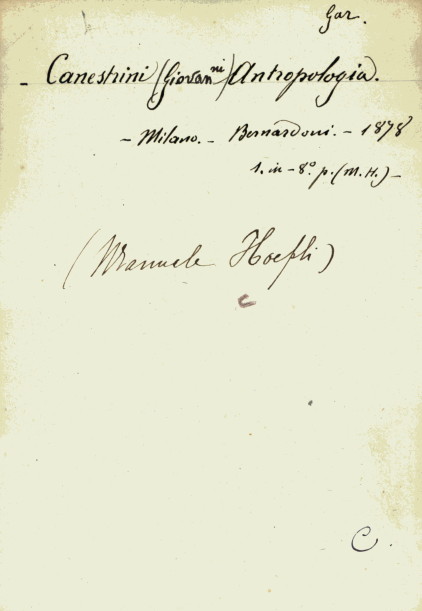 Gar.
- Canestrini (Giovanni) Antropologia.
- Milano. - Bernardoni. - 1878
1. in - 8° p. (M. H.) -
(Manuale Hoepli)
C
C.